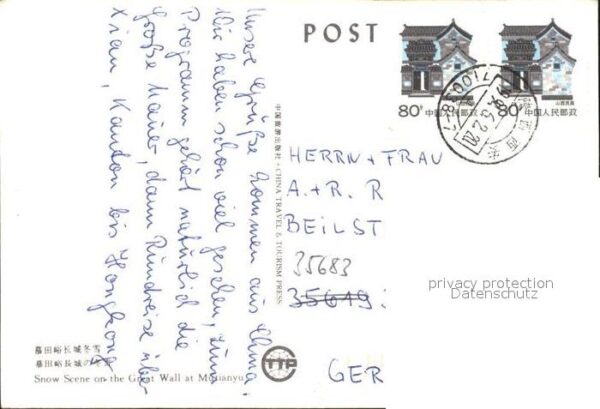 Unsere Grüße kommen aus China.
Wir haben schon viel gesehen, zum
Programm gehört natürlich die
Große Mauer, dann Rundreise über
Xian, Kanton bis Hongkong
POST
80分 中国人民邮政
80分 中国人民邮政
山西民居
中国旅游出版社・CHINA TRAVEL & TOURISM PRESS
HERRN + FRAU
A. + R. R
BEILST
35683
35619
GER
privacy protection
Datenschutz
慕田峪长城冬雪
Snow Scene on the Great Wall at Mutianyu
TTP